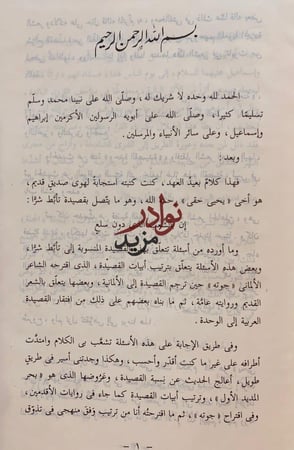 بسم الله الرحمن الرحيم
الحمد لله وحده لا شريك له، وصلّى الله على نبينا محمد وسلّم
تسليمًا كثيرا، وصلّى الله على أبويه الرسولين الأكرمين إبراهيم
وإسماعيل، وعلى سائر الأنبياء والمرسلين.
وبعد:
فهذا كلام بعيدُ العهد، كنت كتبته استجابة لهوى صديق قديم،
هو أخى «يحيى حقى»، رحمه الله، وهو ما يتّصل بقصيدة تأبّط شرًّا:
إن دون سلع
نوادر
مزيد
وما أورده من أسئلة تتعلّق القصيدة المنسوبة إلى تأبّط شرًّا،
وبعض هذه الأسئلة يتعلّق بترتيب أبيات القصيدة، الذى اقترحه الشاعر
الألمانى «جوته» حين ترجم القصيدة إلى الألمانية، وبعضها يتعلّق بالشعر
القديم وروايته عامّة، ثم ما بناه بعضهم على ذلك من افتقار القصيدة
العربية إلى الوحدة.
وفى طريق الإجابة على هذه الأسئلة تشعّب بى الكلام وامتدّت
أطرافه على غير ما كنت أقدّر وأحسب، وهكذا وجدتنى أسير فى طريق
طويل، أعالج الحديث عن نِسبة القصيدة، وعَرُوضها الذى هو «بحر
المديد الأول»، وترتيب أبيات القصيدة كما جاء فى روايات الأقدمين،
وفى اقتراح «جوته»، ثم ما اقترحتُه أنا من ترتيب وَفق منهجى فى تذوّق
– ١ –